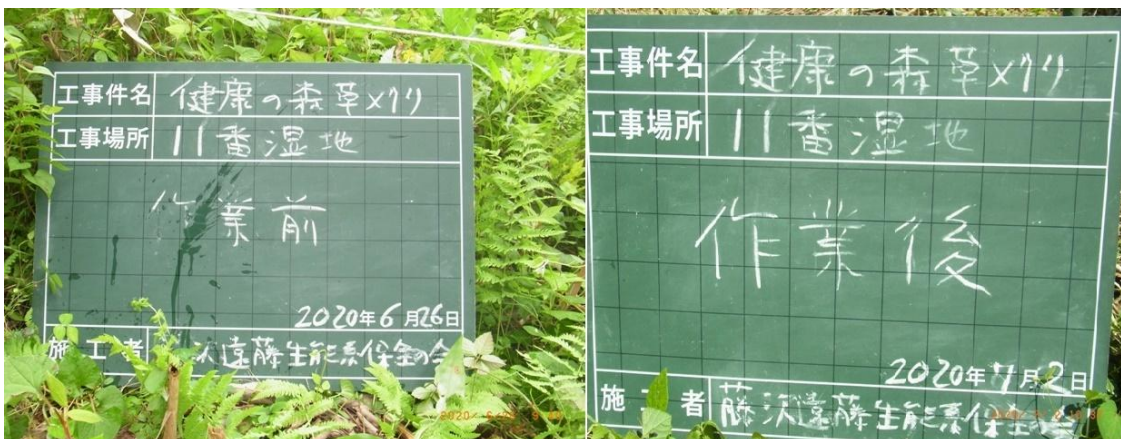 工事件名 健康の森草メクリ
工事場所 11番湿地
作業前
2020年6月26日
施工者 沢遠藤生態系保全の会
工事件名 健康の森草メクリ
工事場所 11番湿地
作業後
2020年7月2日
施工者 藤沢遠藤生態系保全の会